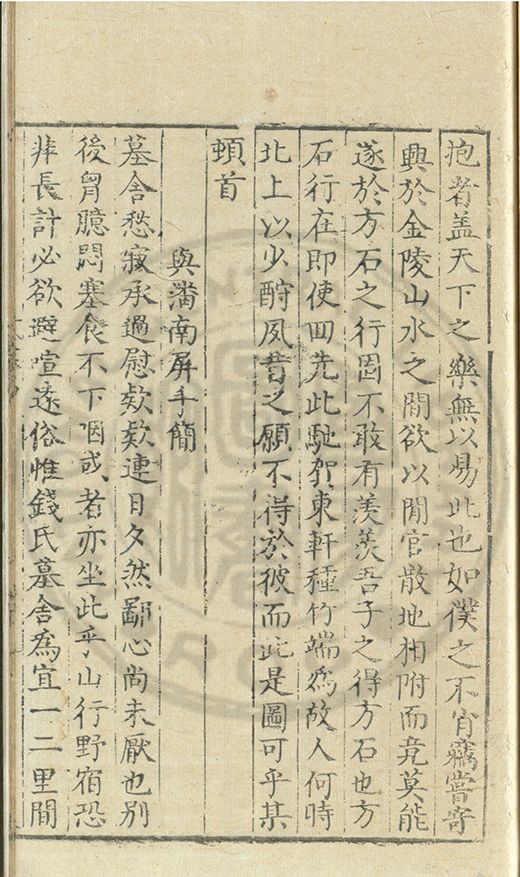 抱者盖天下之樂無以易此也如僕之不肖竊嘗寄
興於金陵山水之間欲以閒官散地相附而竟莫能
遂於方石之行固不敢有羡羡吾子之得方石也方
石行在即使回先此馳賀東軒種竹端為故人何時
北上以少酧夙昔之願不得於彼而此是圖可乎某
頓首
與潘南屏手簡
墓舍愁寂承過慰欵欵連日夕然鄙心尚未厭也别
後胷臆悶塞食不下咽或者亦坐此乎山行野宿恐
非長計必欲避喧遠俗惟錢氏墓舍為宜一二里間